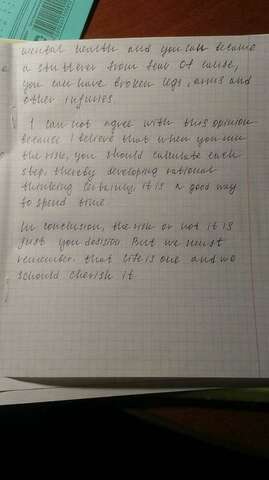 mental health and you can become
a stutterer from fear Of cause,
you can have broken legs, arms and
other injuries.
I can not agree with this opinion
because I believe that when you
the risk, you should calculate each
step, thereby developing rational
thinking Certainly, it is a good way
to spend time
In conclusion, the risk or not it is
just you desision But we must
remember that life is one and we
should cherish it